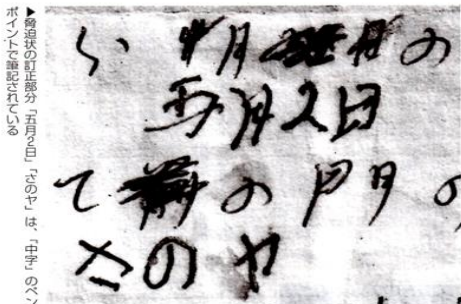 ▶脅迫状の訂正部分「五月2日」「さのヤ」は、「中字」のペン
ポイントで筆記されている
い 月 の
五月2日
て 前の門の
さのヤ